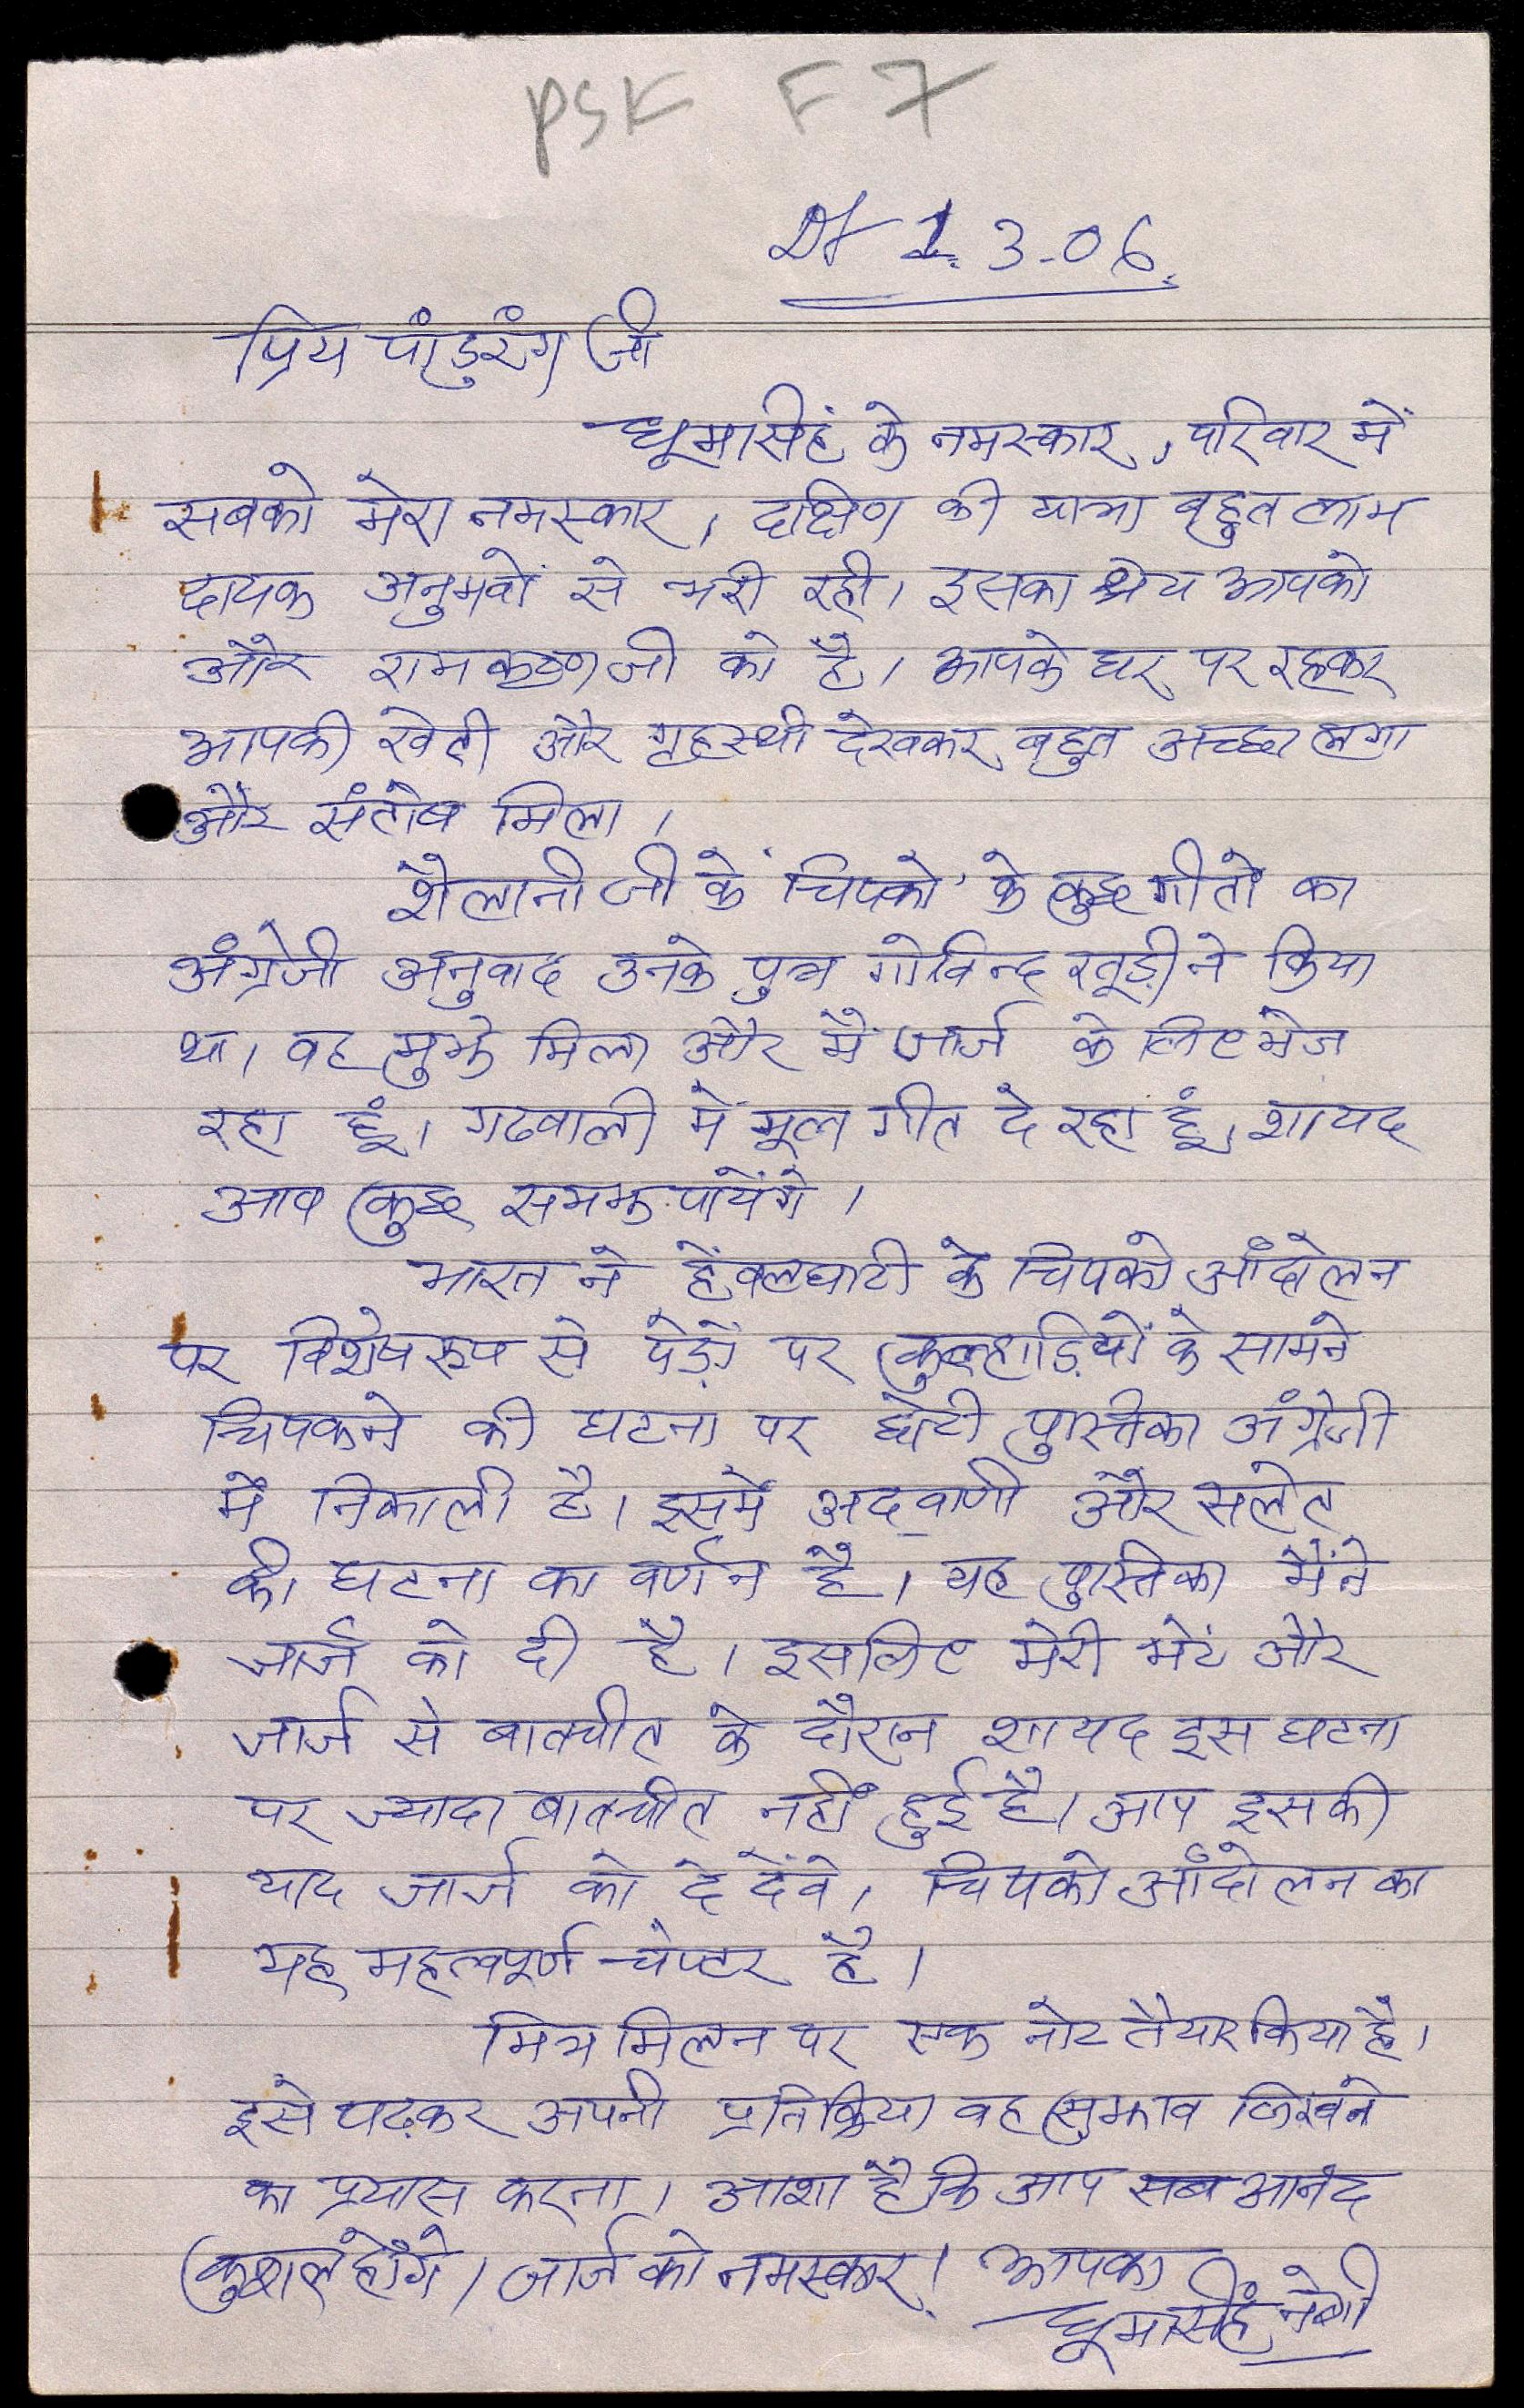 PSK F7
Dt 1.3-06.
प्रिय पांडुरंग जी
धूमसिंह के नमस्कार, परिवार में
सबको मेरा नमस्कार, दक्षिण की यात्रा बहुत लाभ
दायक अनुभवों से भरी रही। इसका श्रेय आपको
और रामकृष्ण जी को है। आपके घर पर रहकर
आपकी खेती और गृहस्थी देखकर बहुत अच्छा लगा
और संतोष मिला।
शैलानी जी के 'चिपको' के कुछ गीतों का
अंग्रेजी अनुवाद उनके पुत्र गोविन्द रतूड़ी ने किया
था। वह मुझे मिला और मैं जार्ज के लिए भेज
रहा हूं। गढवाली में मूल गीत दे रहा हूं, शायद
आप कुछ समझ पायेंगे।
भारत ने हेंवलघाटी के चिपको आंदोलन
पर विशेष रूप से पेड़ों पर कुल्हाड़ियों के सामने
चिपकने की घटना पर छोटी पुस्तिका अंग्रेजी
में निकाली है। इसमें अदवाणी और सलेत
की घटना का वर्णन है। यह पुस्तिका मैंने
जार्ज को दी है। इसलिए मेरी भेंट और
जार्ज से बातचीत के दौरान शायद इस घटना
पर ज्यादा बातचीत नहीं हुई है। आप इसकी
याद जार्ज को दे देंवे। चिपको आंदोलन का
यह महत्वपूर्ण चेप्टर है।
मित्र मिलन पर एक नोट तैयार किया है।
इसे पढ़कर अपनी प्रतिक्रिया वह सुझाव लिखने
का प्रयास करना। आशा है कि आप सब आनंद
कुशल होंगे। जार्ज को नमस्कार। आपका
धूमसिंह नेगी